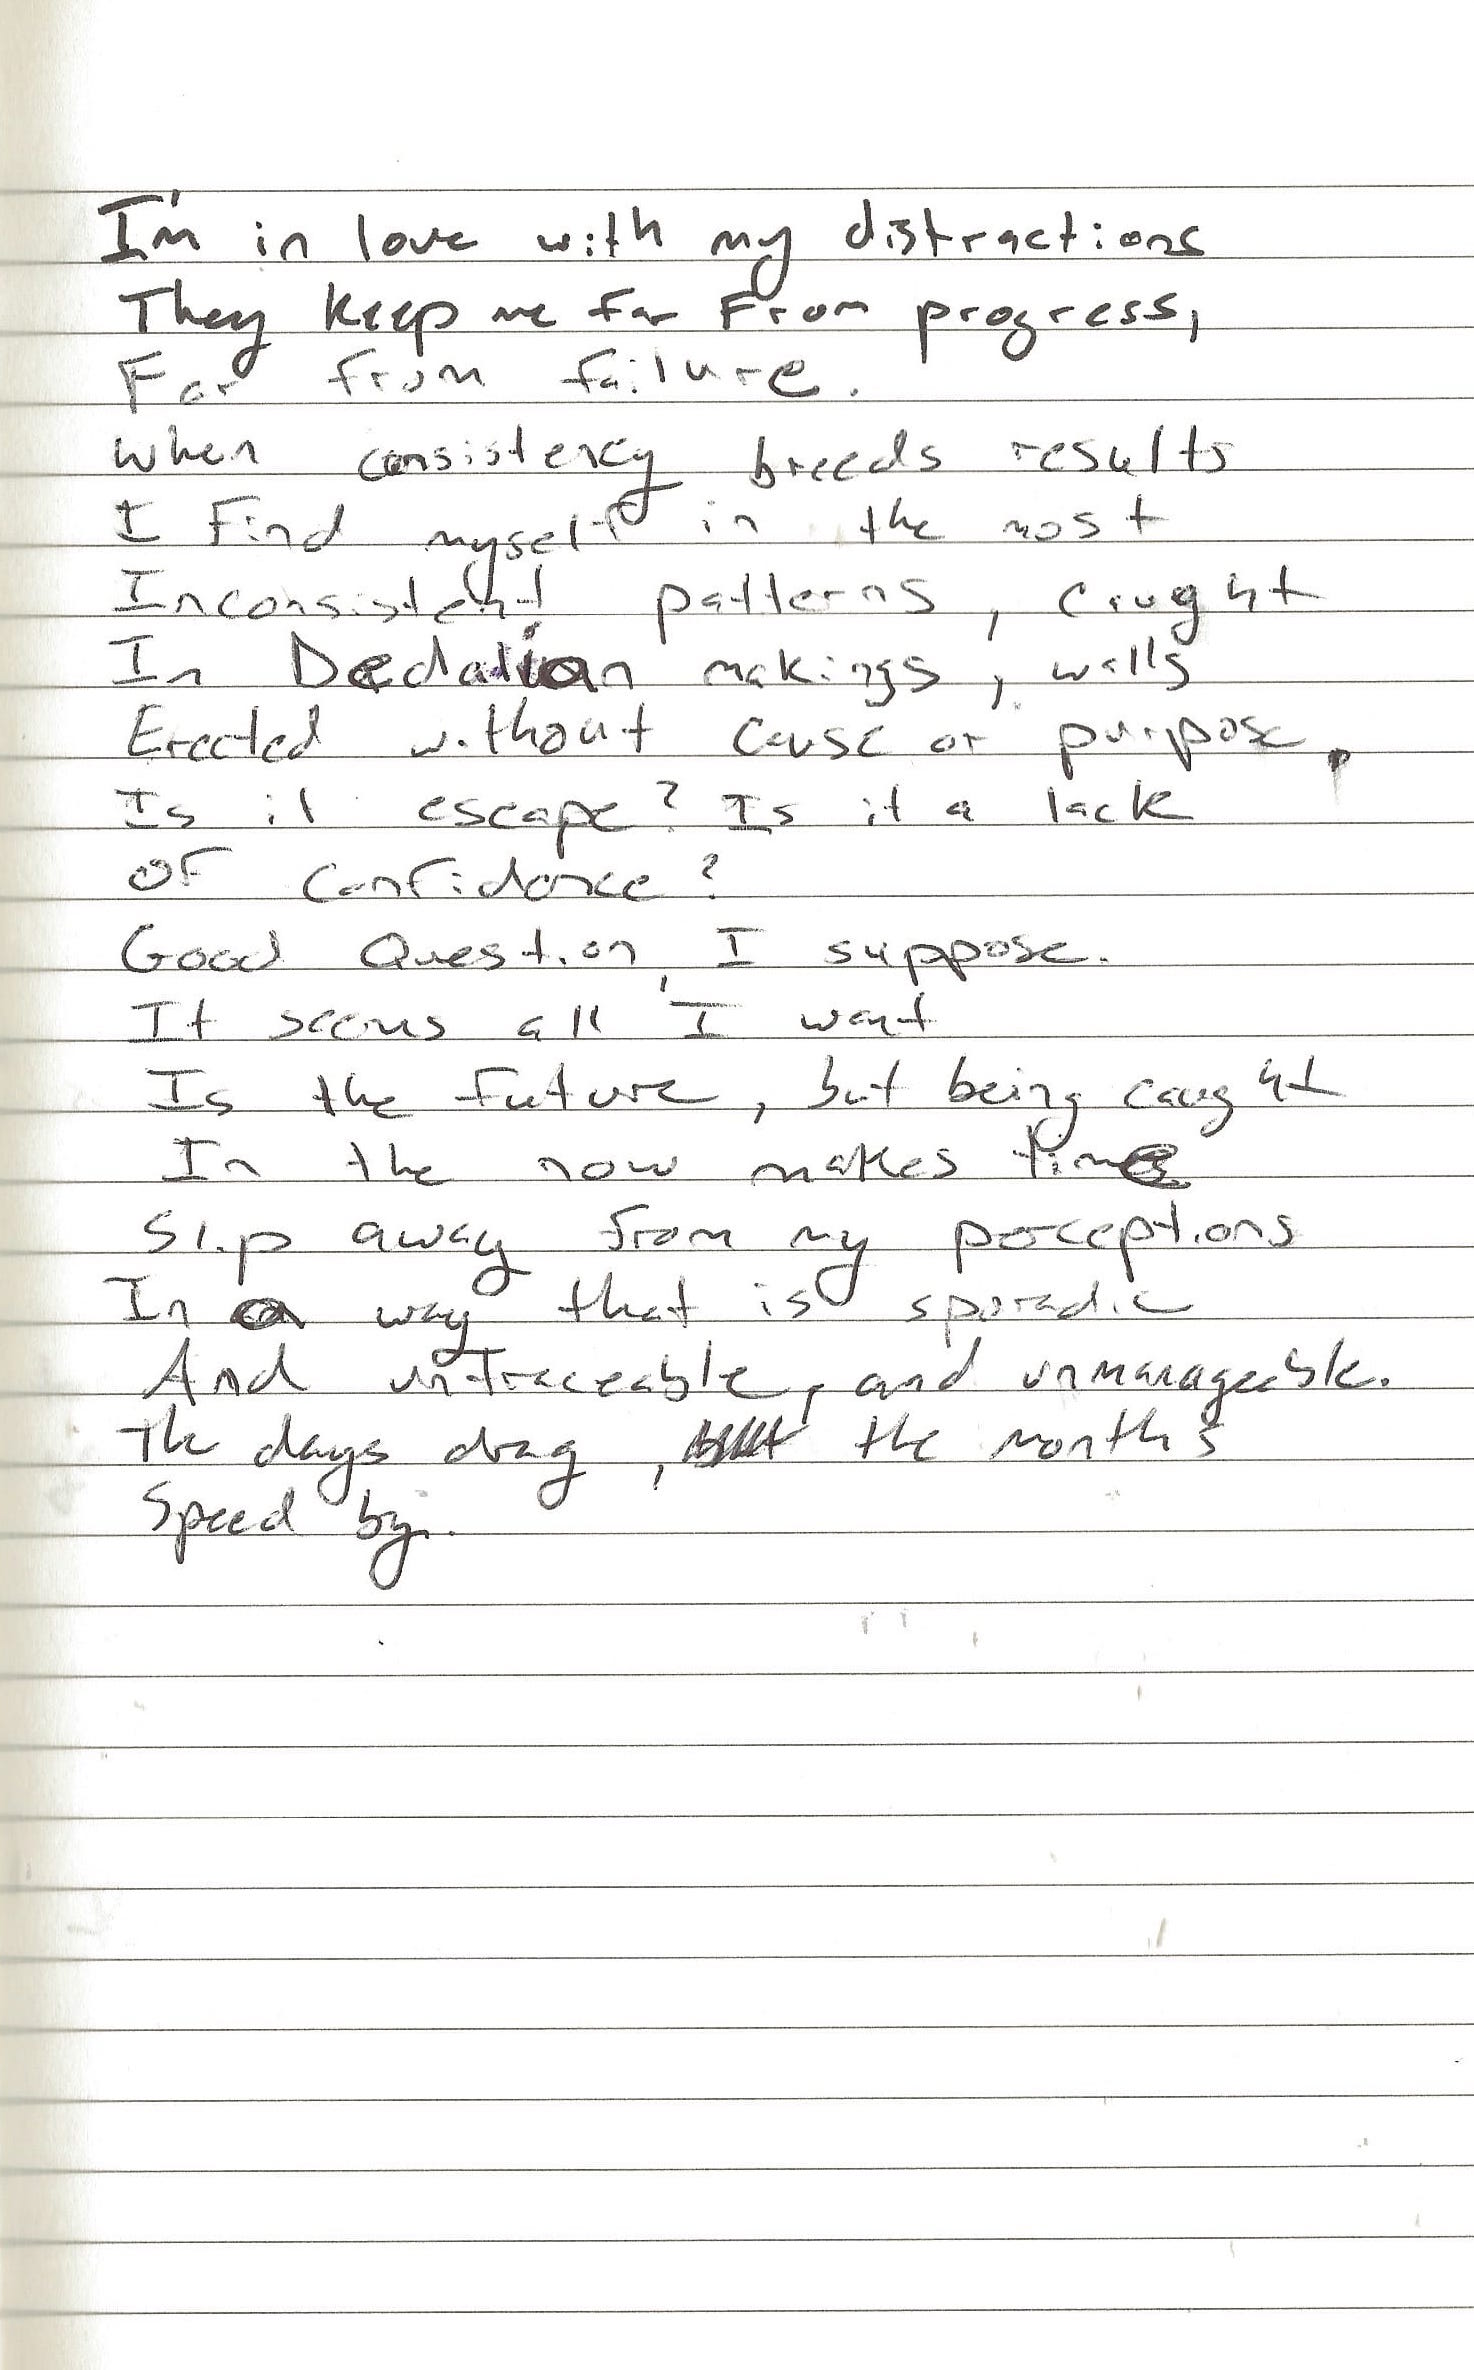 I'm in love with my distractions
They keep me far From progress,
Far from failure.
When consistency breeds results
I Find myself in the most
Inconsistent patterns, caught
In Dedalian makings, walls
Erected without cause or purpose.
Is it escape? Is it a lack
OF Confidence?
Good Question, I suppose.
It seems all I want
Is the future, but being caught
In the now makes time
Slip away from my perceptions
In a way that is sporadic
And untraceable, and unmanageable.
The days drag, the months
Speed by.